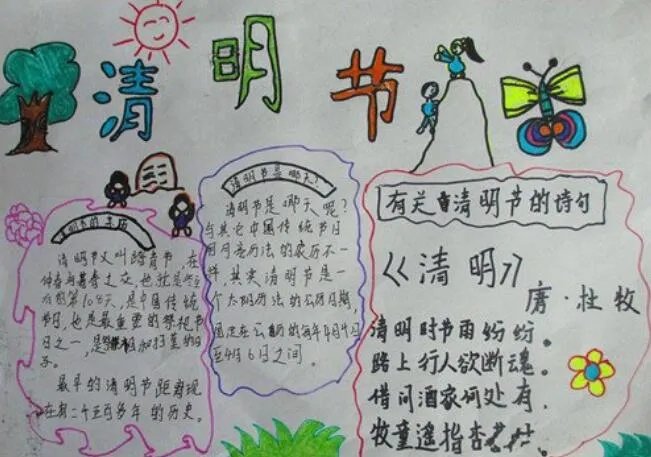 清明节
清明节的来历
清明节又叫踏青节，在
仲春与暮春之交，也就是冬至
后的第108天，是中国传统
节日，也是最重要的祭祀节
日之一，是祭祖和扫墓的日
子。
最早的清明节距离现
在有二千五百多年的历史。
清明节是哪天？
清明节是哪天呢？
与其它中国传统节日
用月亮历法的农历不一
样，其实清明节是一
个太阳历法的公历日期，
固定在公历的每年4月4日
至4月6日之间。
有关清明节的诗句
《清明》
唐·杜牧
清明时节雨纷纷。
路上行人欲断魂。
借问酒家何处有.
牧童遥指杏